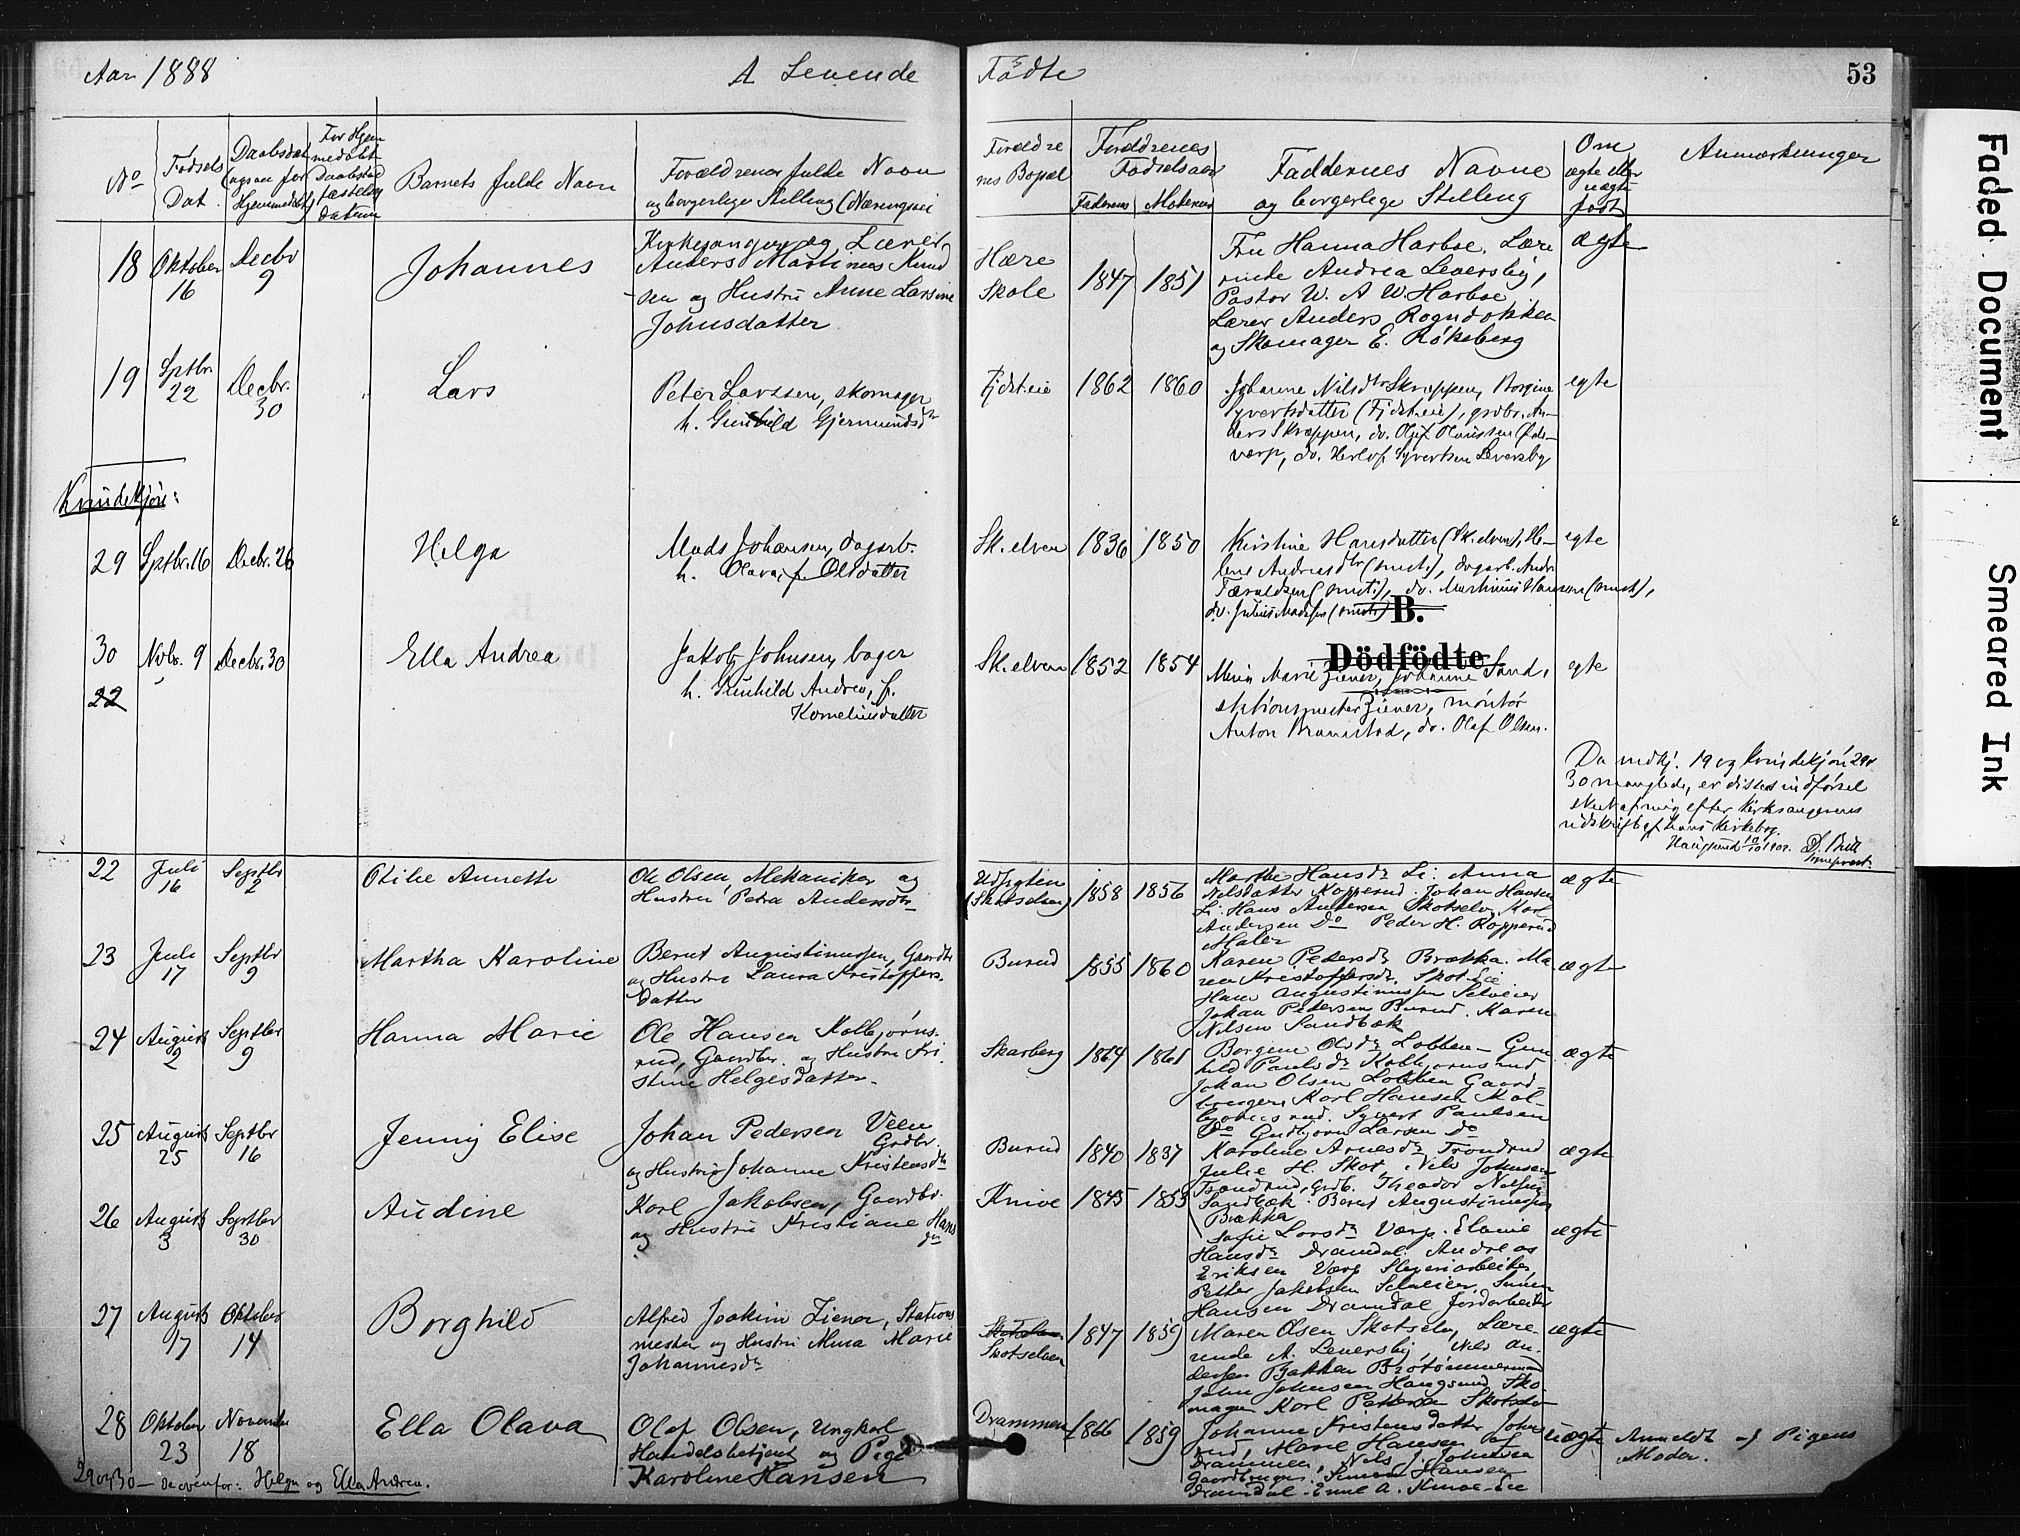 Aar 1888
A Levende Fødte
53
No
Fødsels Dat.
Daabsdat (ogsaa for Hjemmedøbt)
For Hjemmedøbt Daabstad festelses datum
Barnets fulde Navn
Forældrenes fulde Navn
og borgerlige Stilling (Næringsvei
Forældrenes Bopæl
Forældrenes Fødselsaar
Faderens Moderens
Faddernes Navne
og borgerlige Stilling
Om ægte eller uægte født
Anmærkninger
18 Oktober 16 Decbr 9
Johannes
Kirkesanger og Lærer
Anders Martinus Knud
sen og Hustru Anne Larsine
Johnsdatter
Hære Skole 1847 1851
Fru Hanna Harboe, Lære
rinde Andrea Leversby,
Pastor W. A W. Harboe
Lærer Anders Rogndokken
og Skomager E. Røkeberg
ægte
19 Sptbr. 22 Decbr. 30
Lars
Peter Larssen, skomager
h. Gunhild Gjermundsdtr
Fjdst.eie 1862 1860
Johanne Nilsdtr Skrappen, Borgine
Syvertsdatter (Fjdst.eie), grdbr. An-
ders Skrappen, do. Olaf
do. Herlof Syvertsen Leversby
egte
29 Sptbr. 16 Decbr. 26
Helga
Mads Johansen, dagarb.
h. Olava, f. Olsdatter
Sk.elven 1836 1850
Kirstine Hansdatter (Sk.elven), He-
lene Andreasdtr (smst.), dagarb. Andr.
(smst.), do. Martinius Hansen (smst.),
do. Julius Madsen (smst.)
egte
B.
Dödfödte
30 Novbr. 9 Decbr. 30
Ella Andrea
Jakob Johnsen, bager
h. Gunhild Andrea, f.
Korneliusdatter
Sk.elven 1852 1854
Mina Marie Ziener, Johanne Sand,
stationsmester Ziener, montør
Anton do. Olaf Olsen.
egte
22
Da nedkj. 19 og 29 og
30 manglede, er disses indførsel
sket af mig efter kirkesangerens
udskrift af hans kirkebog.
Haugsund 10/10 1902.
22 Juli 16 Septbr 2
Otilie Annette
Ole Olsen Mekaniker og
Hustru Petra Andersdtr
(Skotselven) 1858 1856
Marthe Hansdr Anna
Nilsdatter Kopperud. Johan Hansen
Hans Andersen Skotselv, Karl
Andersen Do Peder H. Kopperud
Maler
ægte
23 Juli 17 Septbr 9
Martha Karoline
Bernt Augustinussen, Gaardbr
og Hustru Laura Kristoffers-
datter
Burud 1855 1860
Karen Pedersdr Brækka. Ma
ren Kristoffersdr.
Hans Augustinussen Selveier
Johan Pedersen Burud. Karen
Nilsen Sandbæk
ægte
24 August 2 Septbr 9
Hanna Marie
Ole Hansen Kolbjørns-
rud, Gaardbr. og Hustru Kri-
stine Helgesdatter.
Skarberg 1864 1861
Borgine Olsdr Lobben - Gun
hild Paulsdr Kolbjørnsrud
Johan Olsen Lobben Gaard-
bruger, Karl Hansen Kol-
bjørnsrud. Syvert Paulsen
Do Gudbjørn Larsen Do
ægte
25 August 25 Septbr 16
Jenny Elise
Johan Pedersen Veen
Grdbr.
og Hustru Johanne Kristensdtr
Burud 1840 1837
Karoline Arnesdr Trondrud
Julie H. Skot, Nils Johnsen
Trondrud, Grdb. Theodor Nilsen
Sandbæk. Bernt Augustinussen
Brækka
ægte
26 August 3 Septbr 30
Audine
Karl Jakobsen, Gaardbr.
og Hustru Kristiane Hans
dr
Knive 1845 1853
Sofie Larsdr Værp. Elanie
Hansdr Dramdal. Andreas
Eriksen Værp Sliperiarbeider
Petter Jakobsen Selveier, Simen
Hansen Dramdal Jordarbeider
ægte
27 August 17 Oktober 14
Borghild
Alfred Joakim Ziener, Stations
mester og Hustru Mina Marie
Johannesdr
Skotselven 1847 1859
Maren Olsen Skotselv, Lære-
rinde A. Leversby, Nils An-
dersen Bakken Brotømmermand
John Johnsen Haugsund, Sko
mager Karl Pettersen Skotselv
ægte
28 Oktober 23 November 18
Ella Olava
Olaf Olsen, Ungkarl
Handelsbetjent og Pige
Karoline Hansen
Drammen 1866 1859
Johanne Kristensdatter
Marie Hansen
Drammen, Nils J. Johnsrud
Gaardbruger. Simen Hansen
Dramdal. Emil A. Knive-Eie
uægte
Anmeldt af Pigens
Moder.
29 og 30 - se ovenfor: Helga og Ella Andrea.
Faded Document
Smeared Ink